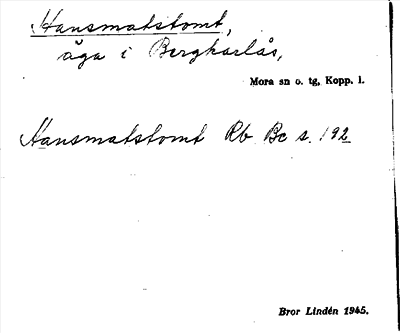 Hansmatstomt,
äga i Bergkarlås,
Mora sn o. tg, Kopp. l.
Hansmatstomt Rb Bc s. 192
Bror Lindén 1945.